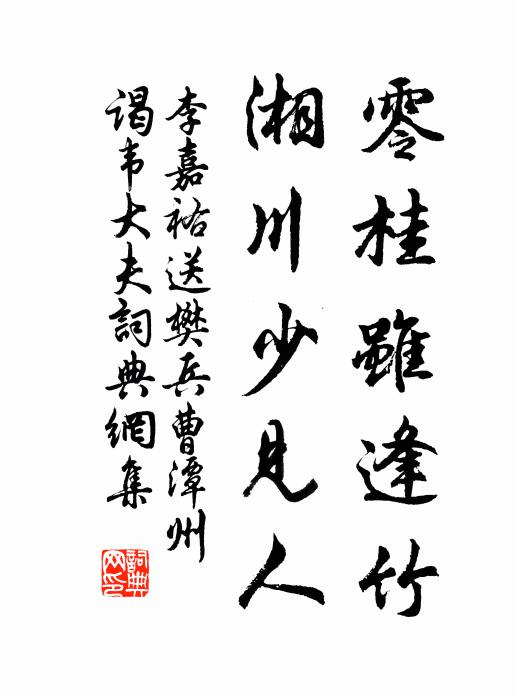 零桂雖逢竹
湘川少見人
李嘉祐送樊兵曹潭州
謁韦大夫詞典網集
詞典网印